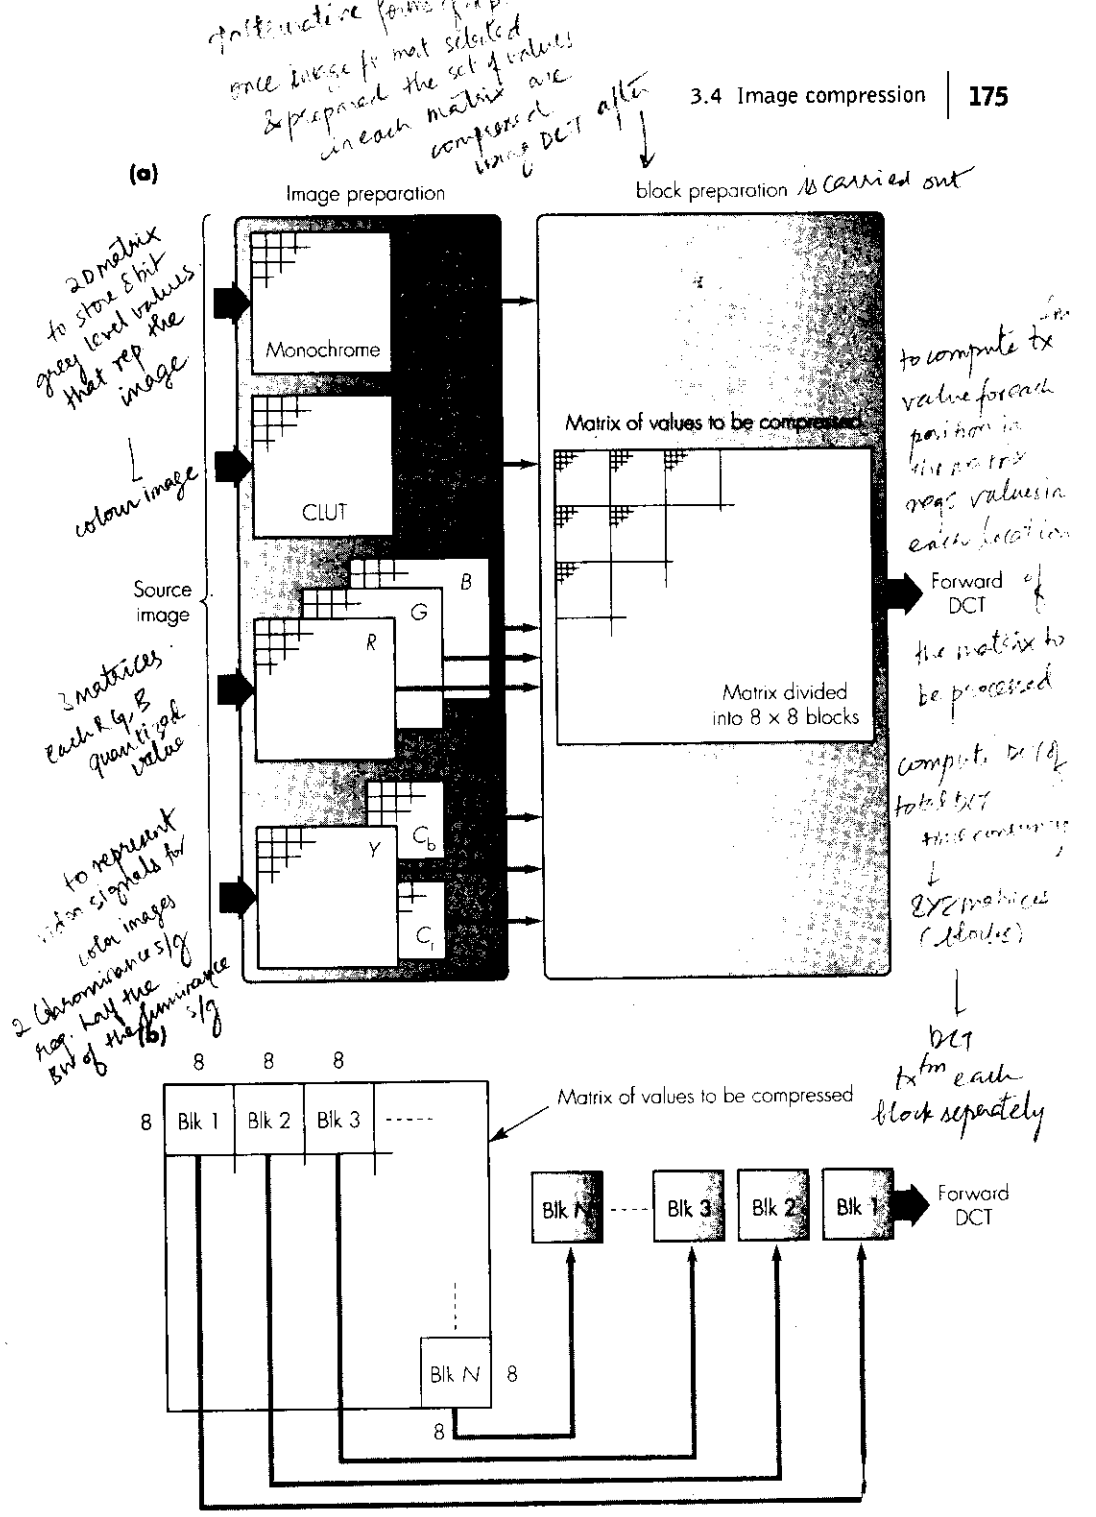 once image
selected
& prepared the set of values
in each matrix are
compressed
using DCT after
3.4 Image compression 175
(a)
Image preparation
block preparation is carried out
2D matrix
to store 8 bit
grey level values
that rep the
image
colour image
Monochrome
CLUT
B
G
R
Source
image
3 matrices
each R G, B
quantized
value
Y
Cb
Cr
to represent
signals for
color images
2 Chrominance s/g
req. half the
BW of the luminance
s/g
Matrix of values to be compressed
Matrix divided
into 8 x 8 blocks
to compute tx
value for each
position in
the matrix
reqs values in
each location
Forward
DCT
of
the matrix to
be processed
total DCT
(blocks)
DCT
txfm each
block seperately
(b)
8 8 8
8 Blk 1 Blk 2 Blk 3
Matrix of values to be compressed
Blk N Blk 3 Blk 2 Blk 1
Forward
DCT
Blk N 8
8